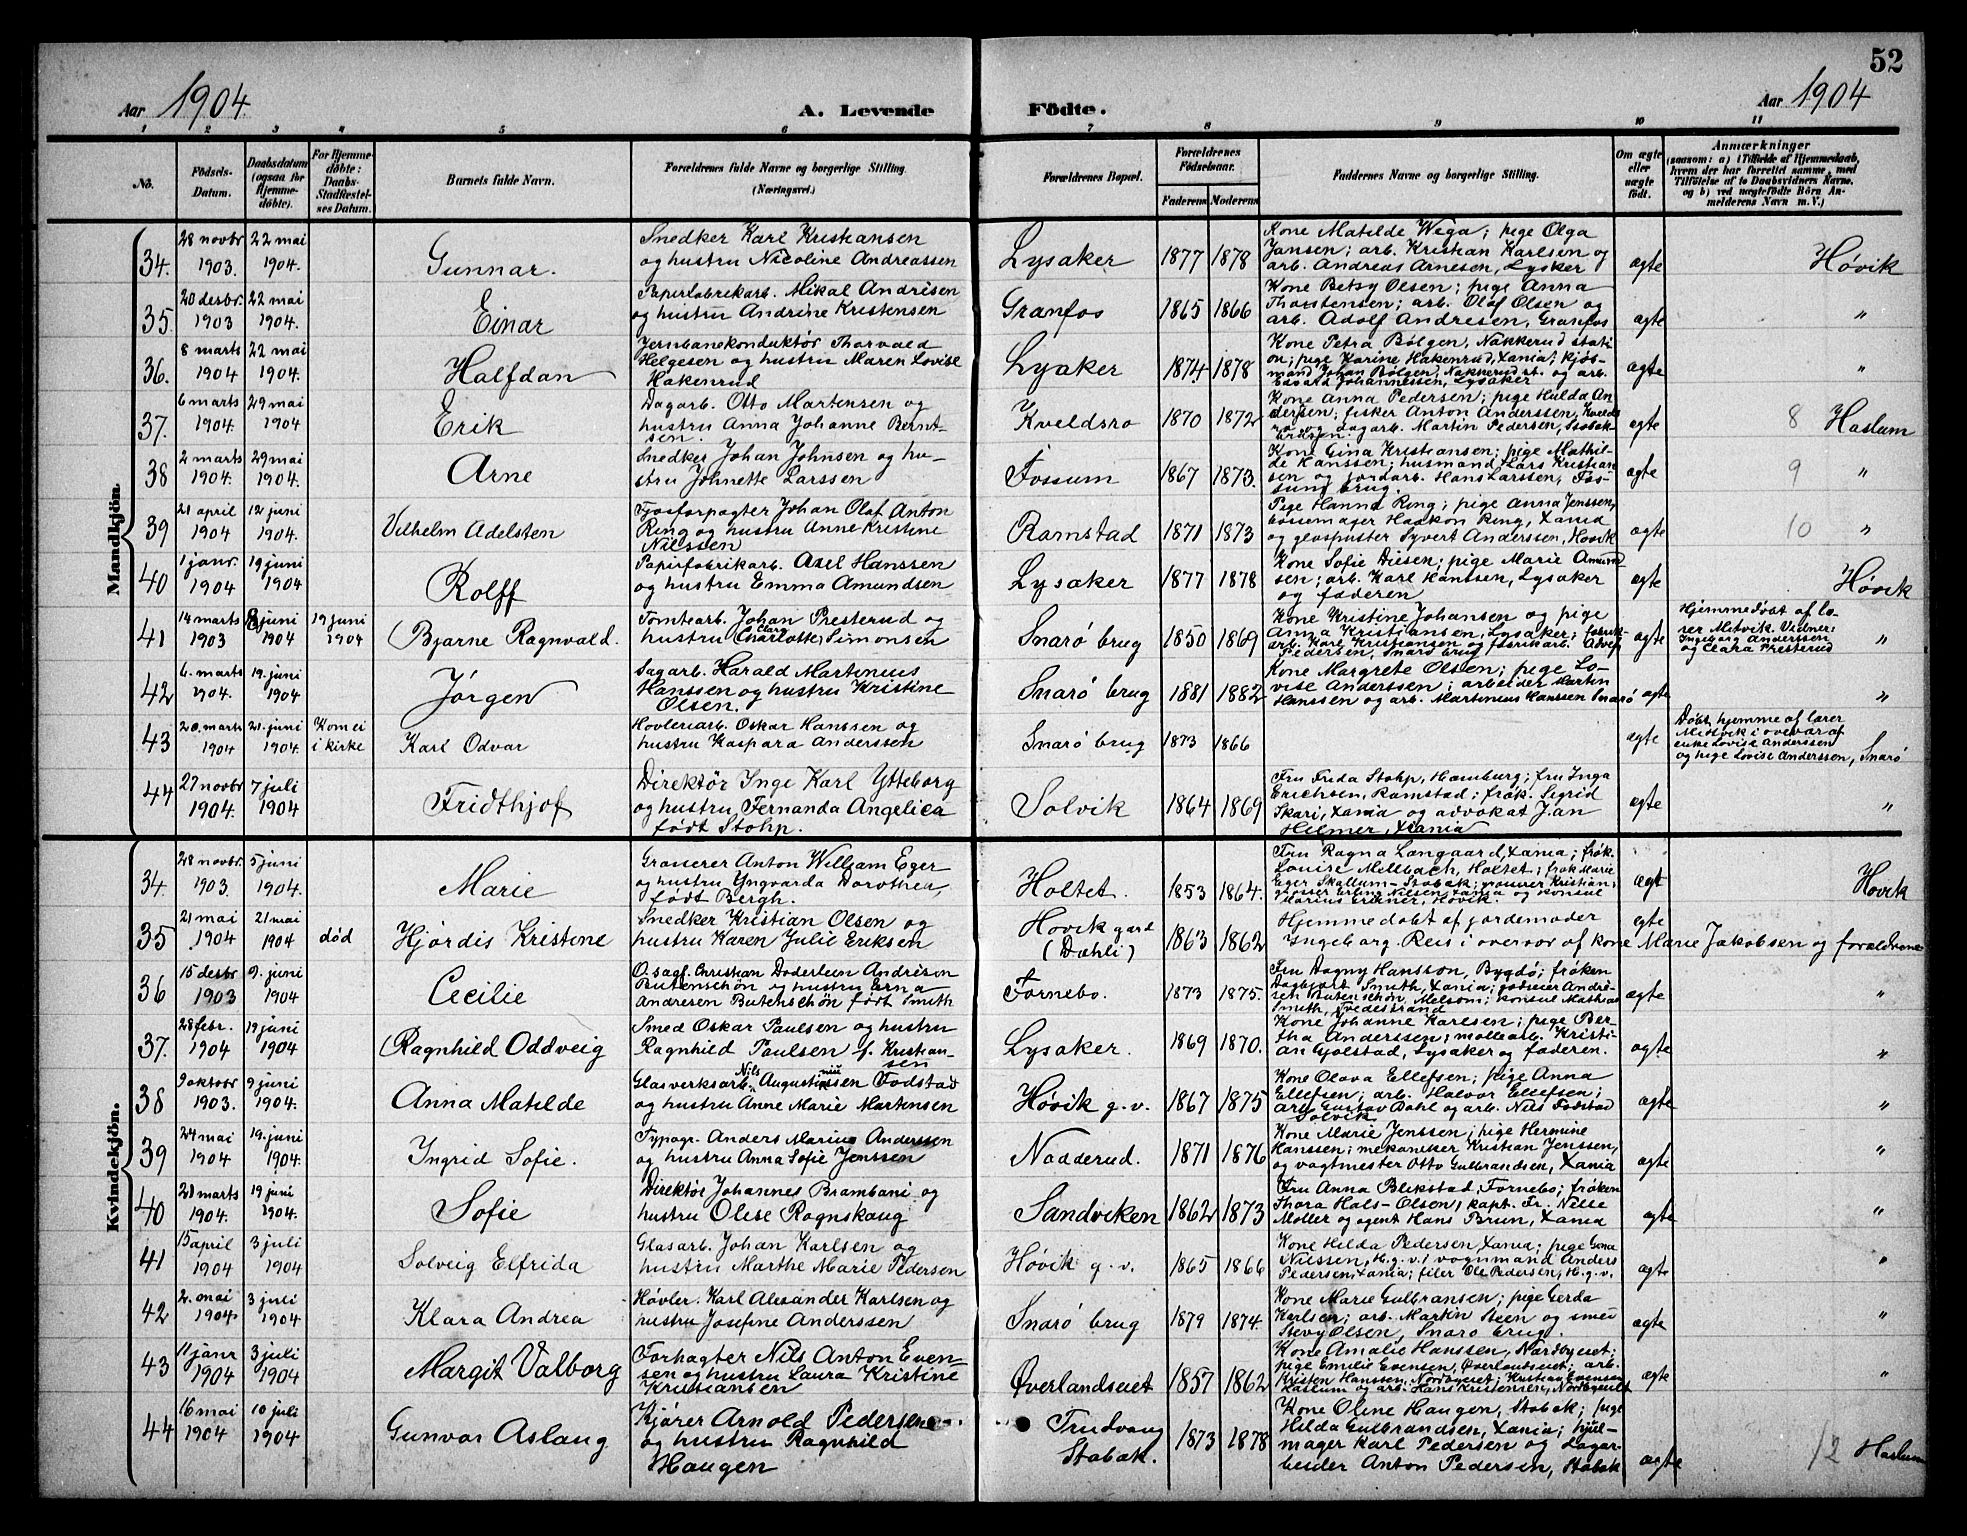 52
Aar 1904. A. Levende Födte. Aar 1904
1 2 3 4 5 6 7 8 9 10 11
No.
Födsels-
Datum.
Daabsdatum
(ogsaa for
Hjemme-
döbte).
For Hjemme-
döbte:
Daabs-
Stadfæstel-
ses Datum.
Barnets fulde Navn.
Forældrenes fulde Navne og borgerlige Stilling.
(Næringsvei.)
Forældrenes Bopæl.
Forældrenes
Födselsaar.
Faderens Moderens
Faddernes Navne og borgerlige Stilling.
Om ægte
eller
uægte
födt.
Anmærkninger
(saasom: a) i Tilfælde af Hjemmedaab,
hvem der har forrettet samme, med
Tilföielse af to Daabsvidners Navne,
og b) ved uægtefödte Börn An-
melderens Navn m. V.)
Mandkjön.
34. 28 novbr 1903. 22 mai 1904. Gunnar.
Snedker Karl Kristiansen
og hustru Nicoline Andreassen
Lysaker 1877 1878
Kone Matilde Wega; pige Olga
Jansen; arb. Kristian Karlsen og
arb. Andreas Arnesen, Lysker
ægte Høvik
35. 20 desbr. 1903 22 mai 1904. Einar
Papirfabrikarb. Mikal Andrisen
og hustru Andrine Kristensen
Granfos 1865 1866
Kone Betsy Olsen; pige Anna
Thorstensen; arb. Olaf Olsen og
arb. Adolf Andresen, Granfos
ægte "
36. 8 marts 1904 22 mai 1904. Halfdan
Jernbanekonduktør Thorvald
Helgesen og hustru Maren Lovise
Hakenrud
Lysaker 1874 1878
Kone Petra Bølgen, Nakkerud stati
on; pige Karine Hakenrud, Xania; kjøs-
mand Johan Bølgen, Nakkerud st. og arb.
Edvard Johannessen, Lysaker
ægte "
37. 6 marts 1904. 29 mai 1904. Erik
Dagarb. Otto Martensen og
hustru Anna Johanne Bernt-
sen.
Kveldsro 1870 1872
Kone Anna Pedersen; pige Hulda An
dersen; fisker Anton Anderssen, Kvelds
ro og Lagarb. Martin Pedersen, Stabæk
ægte 8 Haslum
38 2 marts 1904. 29 mai 1904. Arne
Snedker Johan Johnsen og hu-
stru Johnette Larssen
Fossum 1867 1873.
Kone Gina Kristiansen; pige Mathil-
de Hanssen; husmand Lars Kristian
sen og jordarb. Hans Larssen, Fos-
sung brug.
ægte 9 "
39 21 april 1904 12 juni 1904. Vilhelm Adelsten
Fjosforpagter Johan Olaf Anton
Ring og hustru Anne Kristine
Nilssen
Ramstad 1871 1873
Pige Hanna Ring; pige Anna Jenssen,
bøssemager Haakon Ring, Xania
og glaspuster Syvert Anderssen, Høvik
ægte 10 "
40 1 janr. 1904 19 juni 1904 Rolff
Papirfabrikarb. Axel Hanssen
og hustru Emma Amundsen
Lysaker 1877 1878
Kone Sofie Diesen; pige Marie Amund
sen; arb. Karl Hanssen, Lysaker
og faderen
ægte Høvik
41 14 marts 1903 8 juni 1904 19 juni 1904 Bjarne Ragnvald.
Tomtearb. Johan Presterud og
hustru Clara Charlotte Simonsen
Snarø brug 1850 1869
Kone Kristine Johansen og pige
Anna Kristiansen, Lysaker; fabrik-
arb. Karl Kristiansen og fabrikarb. Adolf
Pedersen, Snarø brug
ægte
Hjemmedøbt af læ-
rer Mitvik. Vidner:
Ingeborg Anderssen
og Clara Presterud
"
42 6. marts 1904. 19. juni 1904 Jørgen
Sagarb. Harald Martenius
Hanssen og hustru Kristine
Olsen.
Snarø brug 1881 1882
Kone Margrete Olsen; pige Lo-
vise Anderssen; arbeider Martin
Hanssen og arb. Martinius Hanssen Snarø
ægte "
43 20. marts 1904 21. juni 1904 Kom ei i kirke Karl Odvar
Høvleriarb. Oskar Hanssen og
hustru Kaspara Anderssen
Snarø brug 1873 1866
ægte
Døbt hjemme af lærer
Mitvik i overvær af
enke Lovise Anderssen
og pige Lovise Anderssen, Snarø
44 27 novbr 1904. 7 juli 1904 Fridthjof
Direktør Inge Karl Ytteborg
og hustru Fernanda Angelica
født Stohp.
Solvik 1864 1869
Fru Frida Stohp, Hamburg; fru Inga
Erichsen, Ramstad; frøk. Sigrid
Skari, Xania og advokat Jan
Hilmer, Xania
ægte "
Kvindekjön.
34. 28 novbr. 1903. 5 juni 1904. Marie
Grosserer Anton William Eger
og hustru Yngvarda Dorothea,
født Bergh.
Holtet. 1853 1864.
Fru Ragna Langaard, Xania; frøk.
Louise Mellbach, Holtet; frøk Marie
Eger Skallum-Stabæk;
ægt Høvik
35 21 mai 1904 21 mai 1904 død Hjørdis Kristine
Snedker Kristian Olsen og
hustru Karen Julie Eriksen
Høvik gard
(Dæhli)
1863 1862
Hjemmedøbt af jordemoder ægte
Ingeborg Reis i overvær af kone Marie Jakobsen og forældrene
36 15 desbr 1903 9. juni 1904 Cecilie
O.sagf. Christian Doderlein Andrisen
Butenschøn og hustru Erna
Andresen Butenschøn født Smith
Fornebo. 1873 1875.
Fru Dagny Hansson, Bygdø; frøken
Dagbjørt Smith, Xania; godseier Andre-
sen Butenschøn, Melsom; konsul Mathias
Smith, Tvedestrand
ægte "
37. 28 febr. 1904 19 juni 1904 Ragnhild Oddveig
Smed Oskar Paulsen og hustru
Ragnhild Paulsen f. Kristian-
sen
Lysaker. 1869 1870.
Kone Johanne Karlsen; pige Ber-
tha Anderssen; møllearb. Kristi-
an Gjølstad, Lysaker og faderen.
ægte "
38 9 oktobr 1903. 9 juni 1904. Anna Matilde
Glasverksarb. Nils Augustinussen Fodstad
og hustru Anne Marie Martensen
Høvik g.v. 1867 1875
Kone Olava Ellefsen; pige Anna
Ellefsen; arb. Halvor Ellefsen;
arb. Gustav Dahl og arb. Nils Fodstad
Solvik
ægte "
39 24 mai 1904 19. juni 1904. Ingrid Sofie.
Typogr. Anders Marius Anderssen
og hustru Anna Sofie Jenssen
Nadderud. 1871 1876
Kone Marie Jenssen; pige Hermine
Hanssen; mekaniker Kristian Jenssen,
og vagtmester Otto Gulbrandsen, Xania
ægte "
40 21 marts 1904. 19 juni 1904. Sofie
Direktør Johannes Brambani og
hustru Olise Ragnskaug
Sandviken 1862 1873
Fru Anna Blikstad, Fornebo; frøken
Thora Hals-Olsen; kapt. Fr. Nilse
Møller og agent Hans Brun, Xania
ægte "
41 15 april 1904 3 juli 1904 Solveig Elfrida
Glasarb. Johan Karlsen og
hustru Marthe Marie Pedersen
Høvik g.v. 1865 1866
Kone Hilda Pedersen Xania; pige Gina
Nilssen, H.g.v.; vognmand Anders
Pedersen, Xania; filer Ole Pedersen, H.g.v.
ægte "
42 2. mai 1904 3 juli 1904 Klara Andrea
Høvler. Karl Alexander Karlsen og
hustru Josefine Anderssen
Snarø brug 1879 1874.
Kone Marie Gulbransen; pige Gerda
Karlsen; arb. Martin Steen og smed
Olsen, Snarø brug.
ægte "
43 11 janr 1904 3 juli 1904 Margit Valborg
Forpagter Nils Anton Even-
sen og hustru Laura Kristine
Kristiansen
Øverlandseiet 1857 1862
Kone Amalie Hanssen, Nordbyeiet;
pige Emilie Evensen, Øverlandseiet; arb.
Kristen Hanssen, Nordbyeiet; Kristian Evensen
Haslum og arb. Hans Kristensen, Nordbyeiet
ægte "
44 16 mai 1904 10 juli 1904 Gunvor Aslaug
Kjører Arnold Pedersen
og hustru Ragnhild
Haugen
Trudvang
Stabæk.
1873 1878
Kone Oline Haugen, Stabæk; pige
Hilda Gulbrandsen, Xania; hjul-
mager Karl Pedersen og Lagar-
beider Anton Pedersen, Stabæk
ægte 12 Haslum